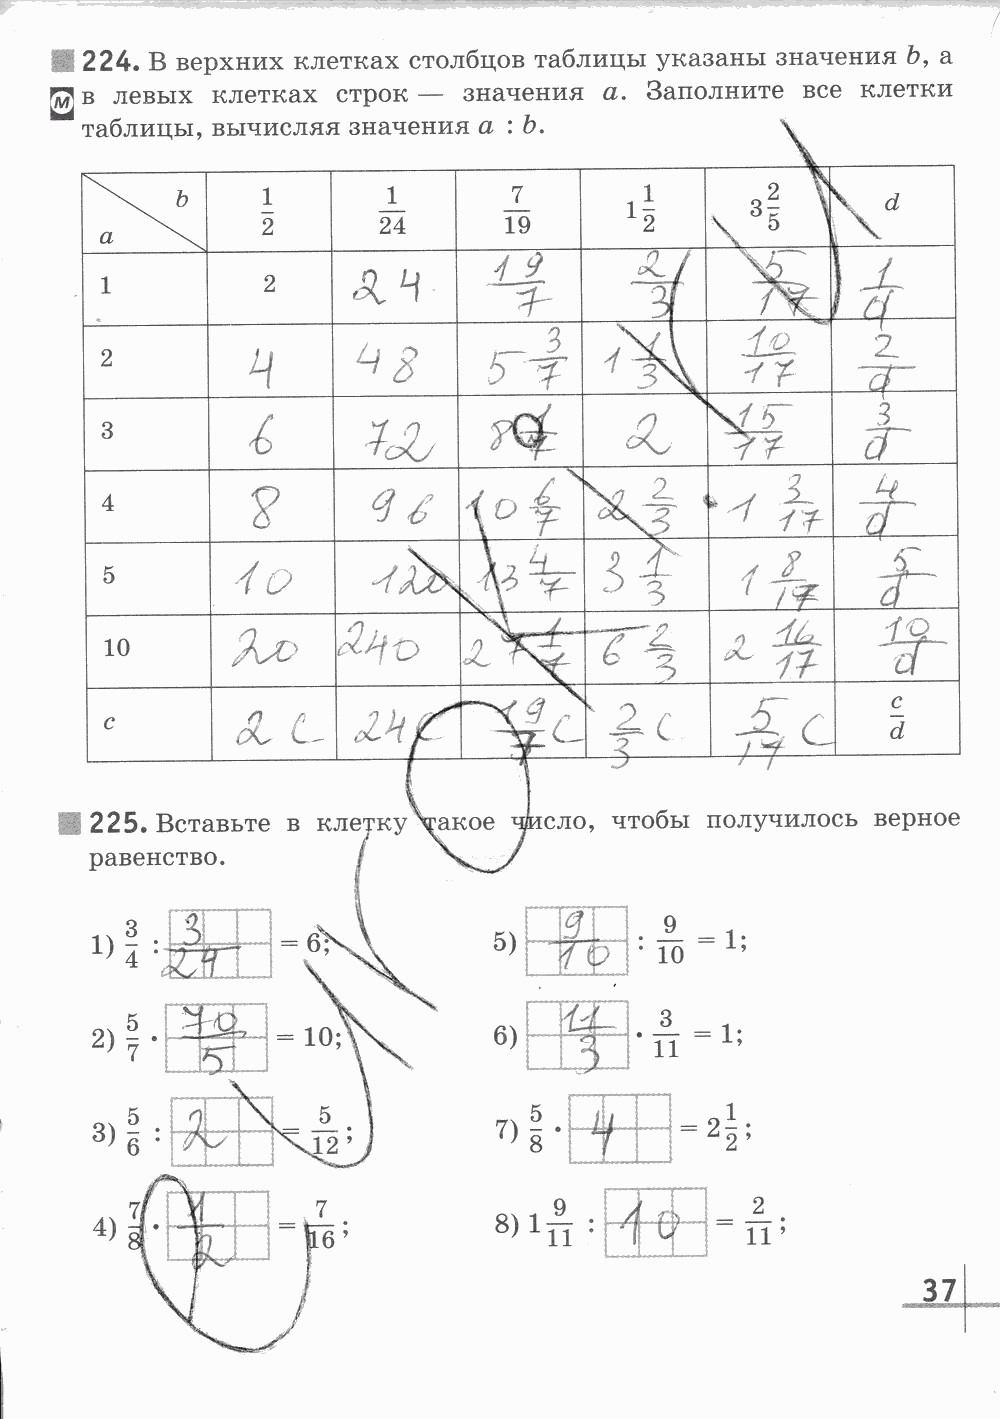 224. В верхних клетках столбцов таблицы указаны значения b, а
М в левых клетках строк — значения a. Заполните все клетки
таблицы, вычисляя значения a : b.
b a 1/2 1/24 7/19 1 1/2 3 2/5 d
1 2 24 19/7 2/3 5/17 1/d
2 4 48 5 3/7 1 1/3 10/17 2/d
3 6 72 8 1/7 2 15/17 3/d
4 8 96 10 6/7 2 2/3 1 3/17 4/d
5 10 120 13 4/7 3 1/3 1 8/17 5/d
10 20 240 27 1/7 6 2/3 2 16/17 10/d
c 2c 24c 19/7 c 2/3 c 5/17 c c/d
225. Вставьте в клетку такое число, чтобы получилось верное
равенство.
1) 3/4 : 3/24 = 6;
2) 5/7 · 70/5 = 10;
3) 5/6 : 2 = 5/12;
4) 7/8 · 1/2 = 7/16;
5) 9/10 : 9/10 = 1;
6) 11/3 · 3/11 = 1;
7) 5/8 · 4 = 2 1/2;
8) 1 9/11 : 10 = 2/11;
37